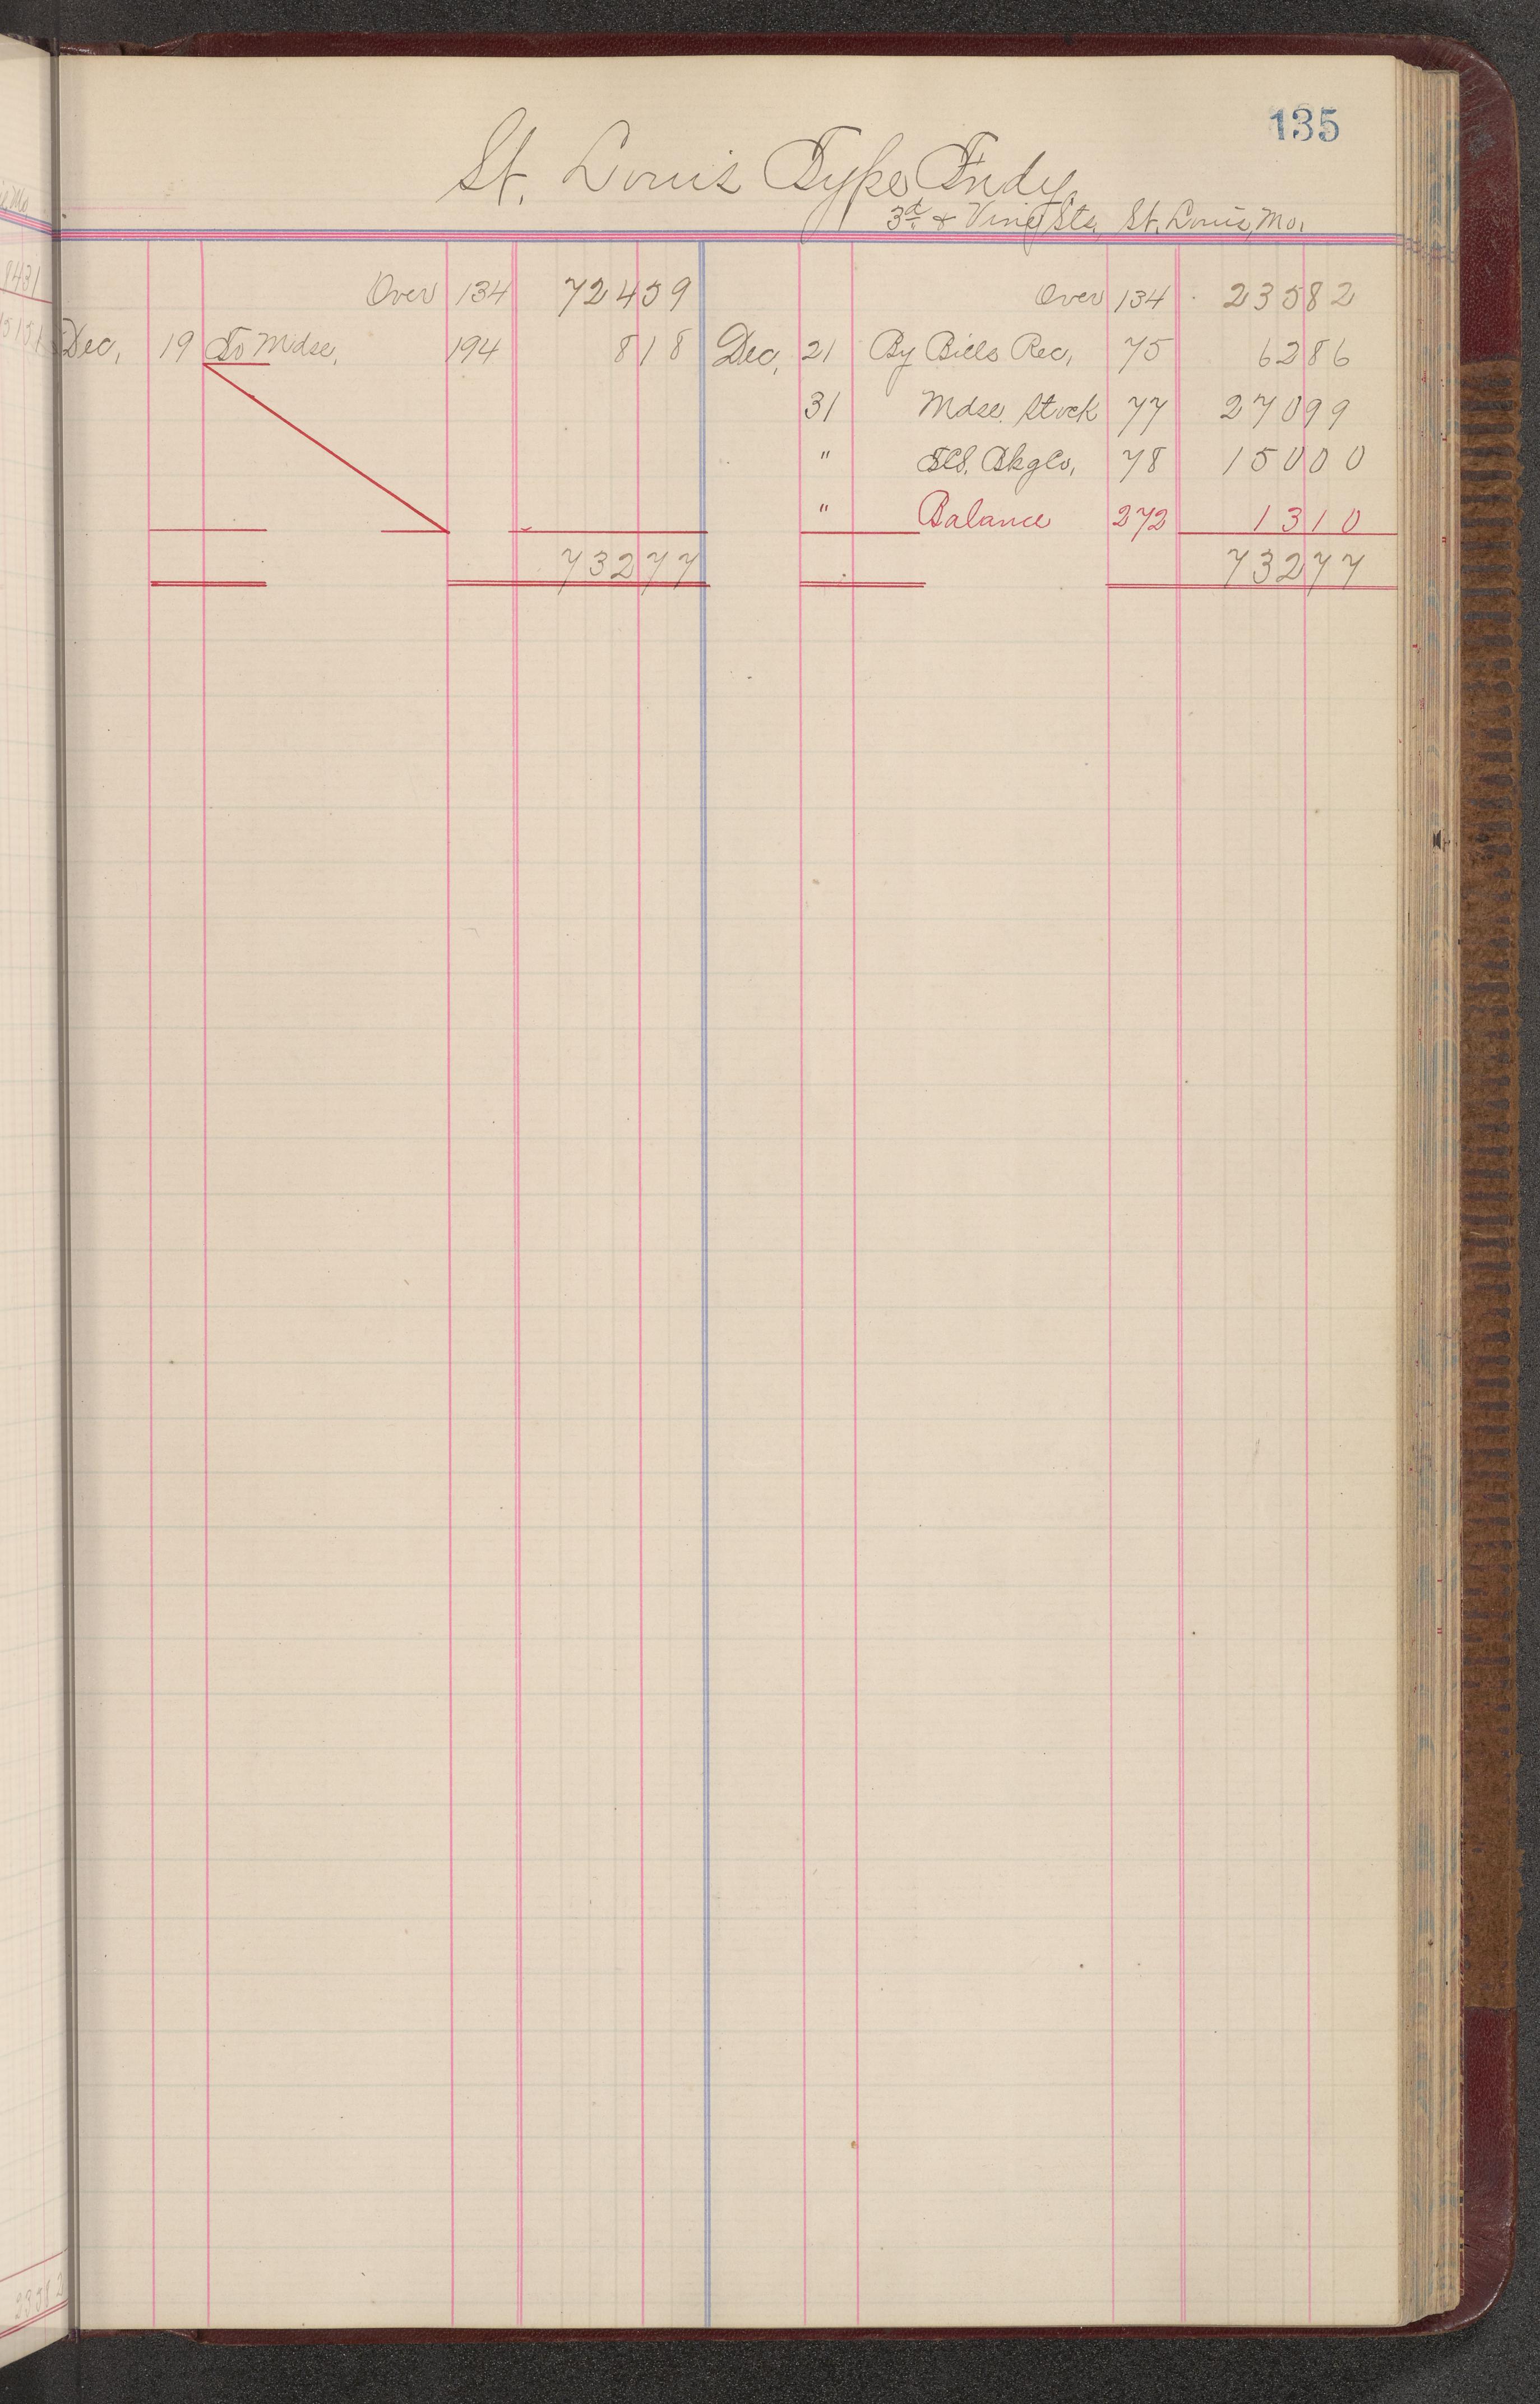 135
St. Louis Type Fndy.
3d & Vine Sts. St. Louis, Mo.
Over 134 724 59
Dec. 19 To Mdse. 194 8 18
732 77
Over 134 235 82
Dec. 21 By Bills Rec. 75 62 86
31 Mdse. Stock 77 270 99
" Bkg Co. 78 150 00
" Balance 272 13 10
732 77